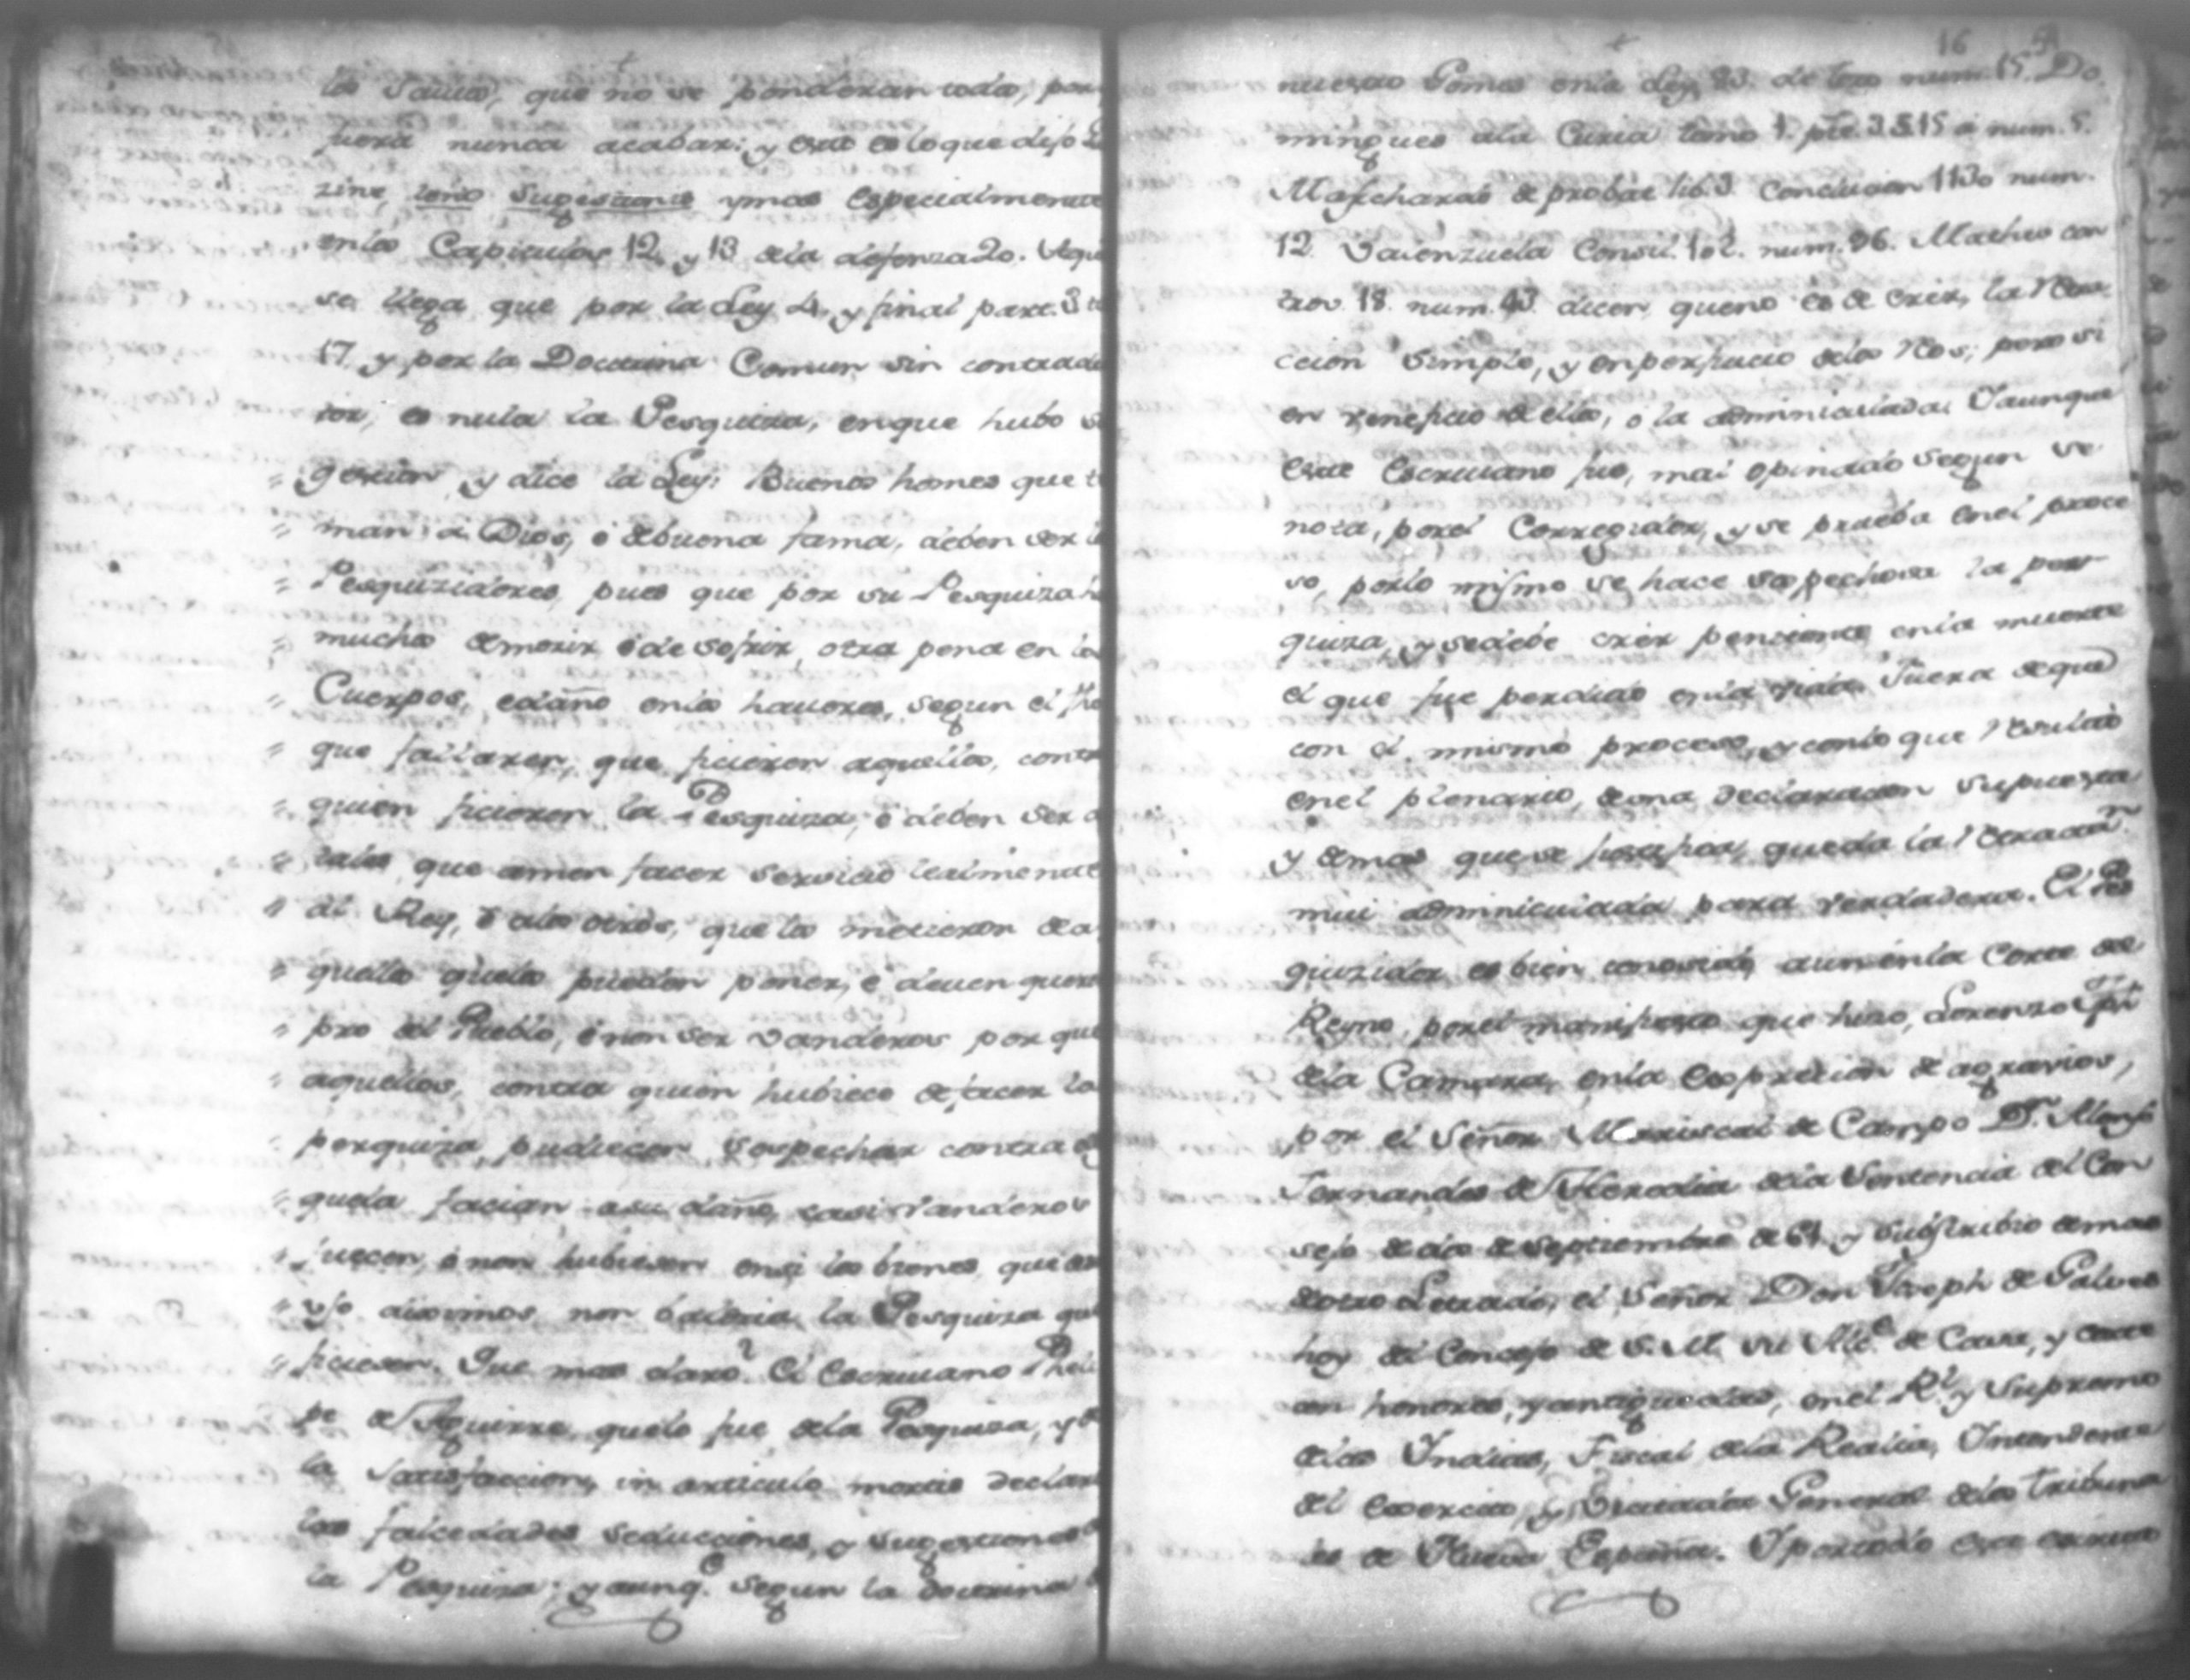 los Santos, que no se ponderan todos, por
fuera nunca acabar: y esto es lo que dijo
zine, toño Sugestionis y mas especialmente
en los Capitulos 12. y 13 de la defenza 20. Aqui
se llega que por la Ley 4. y final part. 3 t
17. y por la Doctrina Comun sin contradi
tor, es nula la Pesquiza, en que hubo su
gestion, y dice la Ley: Buenos homes que te
man á Dios, é de buena fama, deben ser l
Pesquizidores, pues que por su Pesquiza h
muchos de morir é de sofrir, otra pena en los
Cuerpos, e daño en los haueres, segun el
que fallaren, que ficieron aquellos, contra
quien ficieron la Pesquiza, é deben ser a
tales que amen facer servicio lealmente
al Rey, é a los otros, que los metieron de a
quello que los pueden poner, é deuen querer
pro del Pueblo, é non ser vanderos por que
aquellos, contra quien hubiese de facer la
pesquiza, pudiesen sospechar contra
que la facian a su daño, casi vanderos
fuesen, é non hubiesen en si los bienes que
diximos non baldria la Pesquiza que
ficiesen. Que mas claro? El Escriuano Pheli
pe de Aguirre, que lo fue de la Pesquiza, y de
la Satisfaccion, in articulo mortis declaro
las falcedades seducciones, y sugestiones d
la Pesquiza; y aunq.e segun la doctrina
16
nuestro Gomes en la Ley 83. de toro num. 15. Do
mingues a la Curia tomo 1. pte. 3. §. 15 á num. 5.
Mascharas de probat lib. 3 Conclusion 1130 num.
12. Valenzuela Consil. 102. num. 96. Matheo con
trov. 18. num. 43. dicen que no es de crer, la Retra
ccion Simple, y en perjuicio de los Reos; pero si
en veneficio de ellos, o la adminiculada: Y aunque
este Escriuano fue, mal opinado segun se
nota, por el Corregidor, y se prueba en el proce
so, por lo mismo se hace sospechosa la pes
quiza, y se debe crer penitente en la muerte
el que fue perdido en la vida. Fuera de que
con el mismo proceso, y con lo que Resultó
en el plenario, de una declaracion Supuesta
y demas que se justifica, queda la Retracion
mui adminiculada para verdadera. El Pes
quizidor es bien conocido, aun en la Corte del
Reyno, por el manifiesto que hizo, Lorenzo
de la Camara, en la expresion de agravios,
por el Señor Mariscal de Campo D.n Alonso
Fernandes de Heredia de la Sentencia del Con
sejo de dos de Septiembre de 61. y subscribio demas
de otro Letrado, el Señor Don Joseph de Galves
hoy del Concejo de S. M. su Alc.e de Casa, y Corte
con honores, y antiguedad, en el R.l y Supremo
de las Indias, Fiscal de la Realia, Intendente
del Exercito, y Visitador General de los tribuna
les de Nueva España. Y por todo este